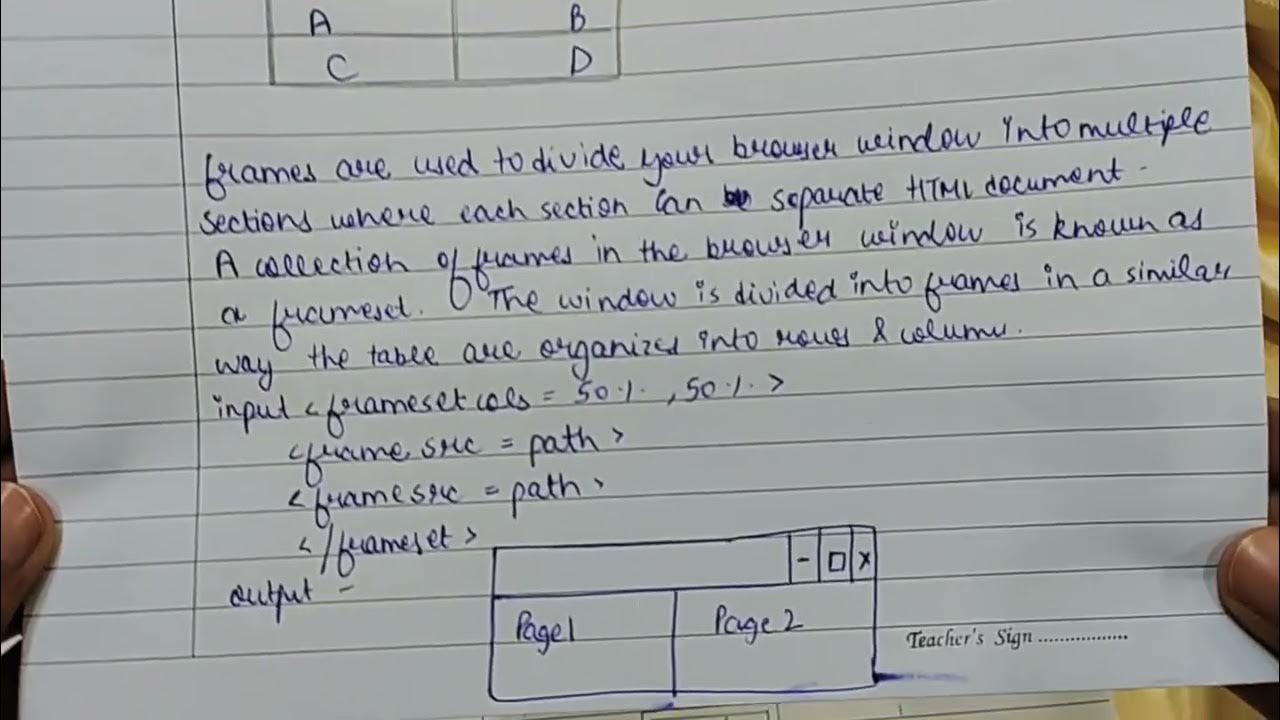 A B
C D
frames are used to divide your browser window into multiple
sections where each section can be separate HTML document.
A collection of frames in the browser window is known as
a frameset. The window is divided into frames in a similar
way the table are organizes into rows & column.
input <frameset cols = 50%, 50%>
<frame src = path>
<frame src = path>
</frameset>
output -
- □ x
Page1 Page 2
Teacher's Sign .................